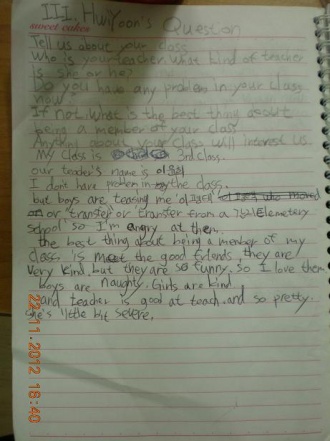 III. HwiYoon's Question
sweet cakes
Tell us about your class
Who is your teacher. What kind of teacher
is she or he?
Do you have any problem in your class
now?
If not what is the best thing about
being a member of your class
Anything about your class will interest us.
My class is 3rd class.
our teacher's name is
I don't have problem in my the class.
but boys are teasing me
or "transfer or transfer from a Elemetery
school" so I'm angry at then.
the best thing about being a member of my
class. is meet the good friends, they are
very kind, but they are so funny. So I love them
boys are naughty. Girls are kind
and teacher is good at teach. and so pretty.
she's little bit severe.
22.11.2012 18:40